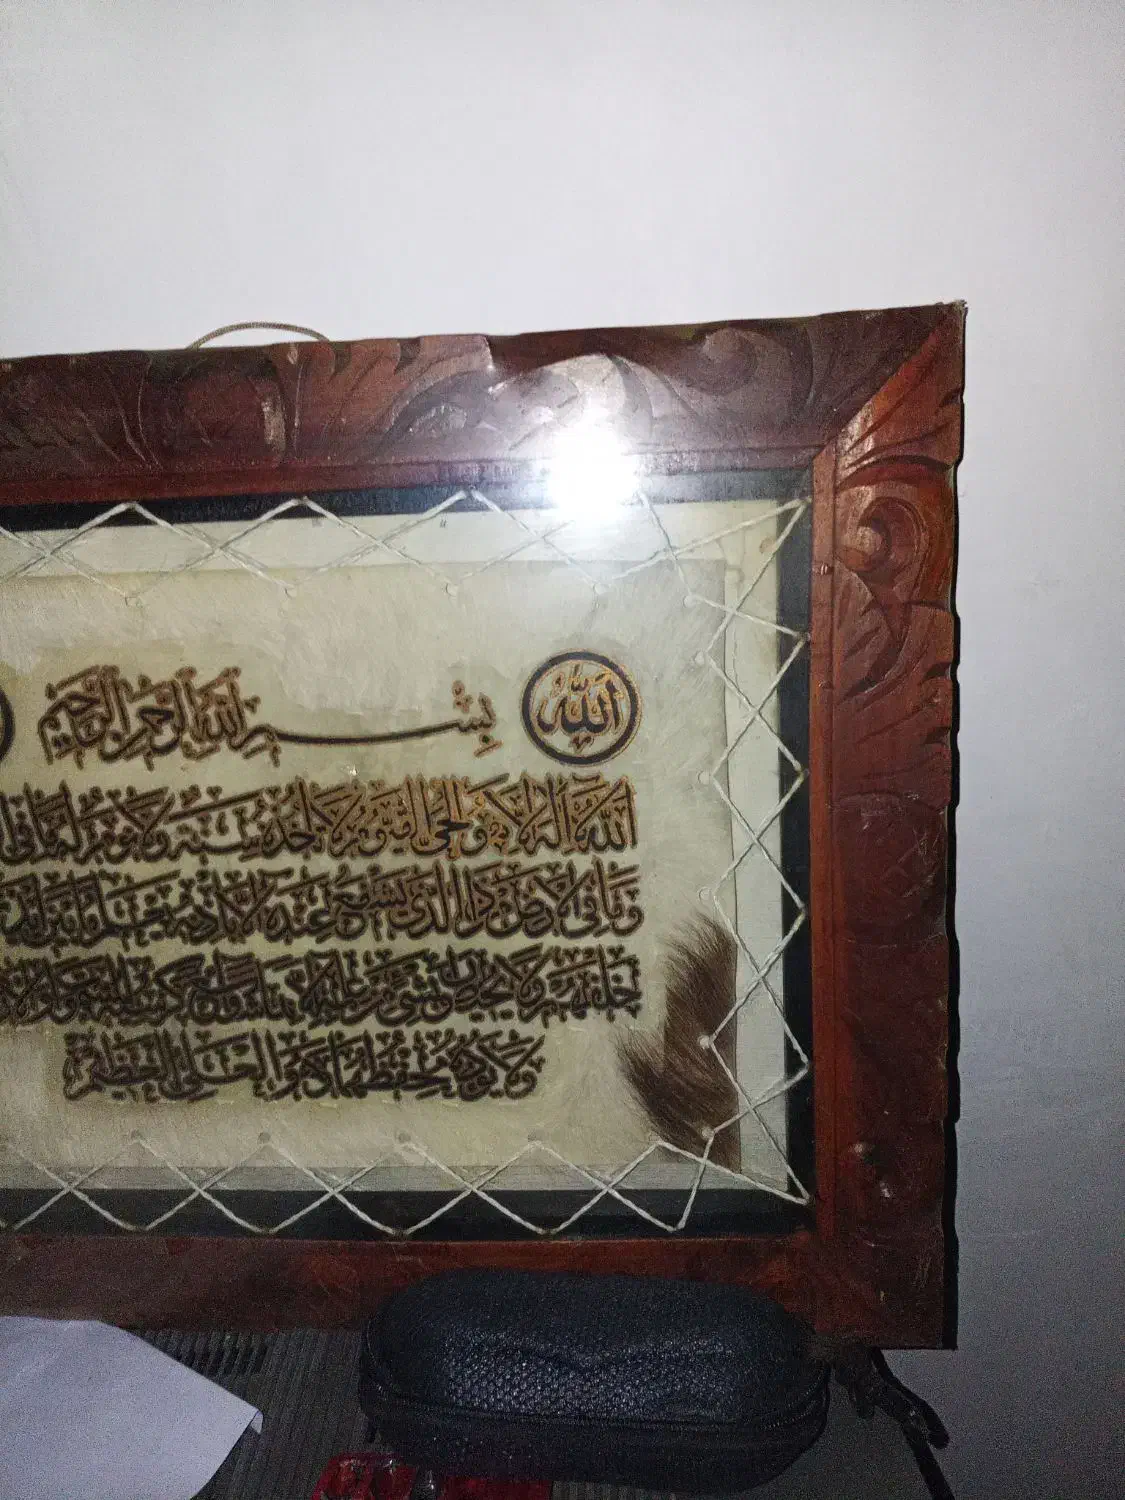 الله
بسم الله الرحمن الرحيم
الله لا اله الا هو الحي القيوم لا تأخذه سنة ولا نوم له ما في
وما في الارض من ذا الذي يشفع عنده الا باذنه يعلم ما بين
خلفهم ولا يحيطون بشيء من علمه الا بما شاء وسع كرسيه السموات والارض
ولا يؤده حفظهما وهو العلي العظيم